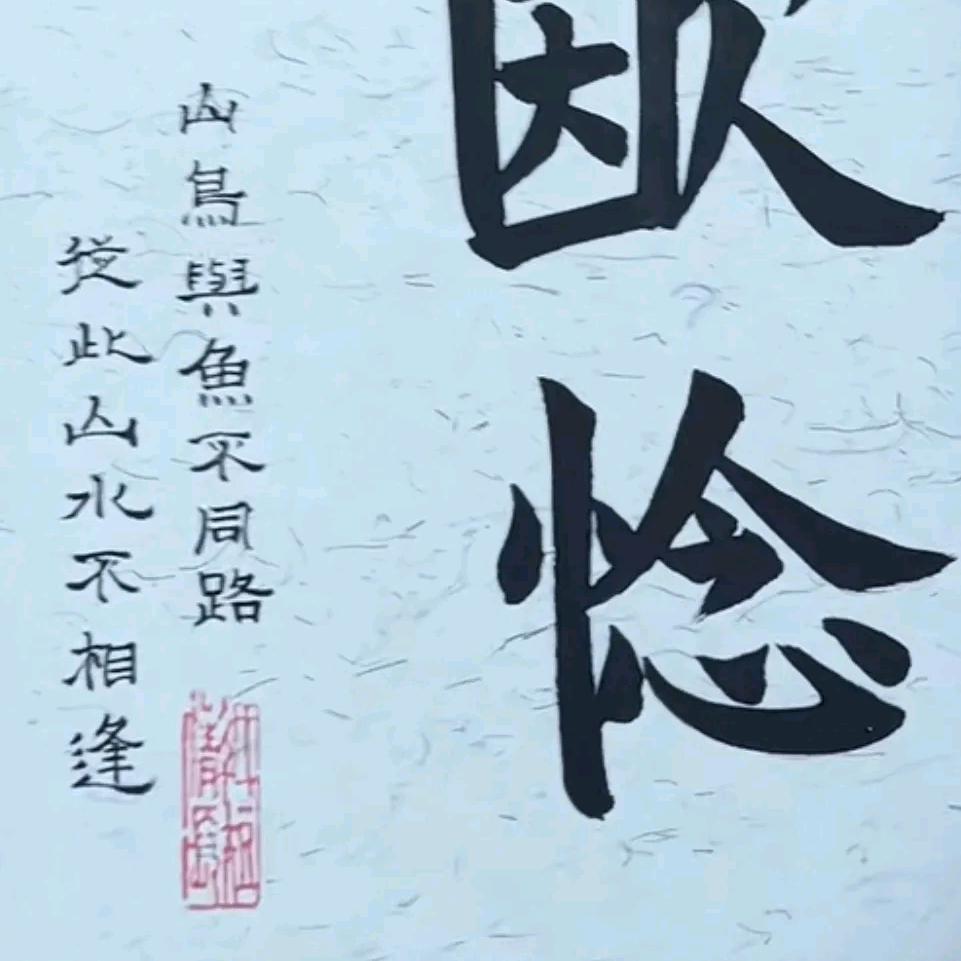 惗
山鳥與魚不同路
從此山水不相逢